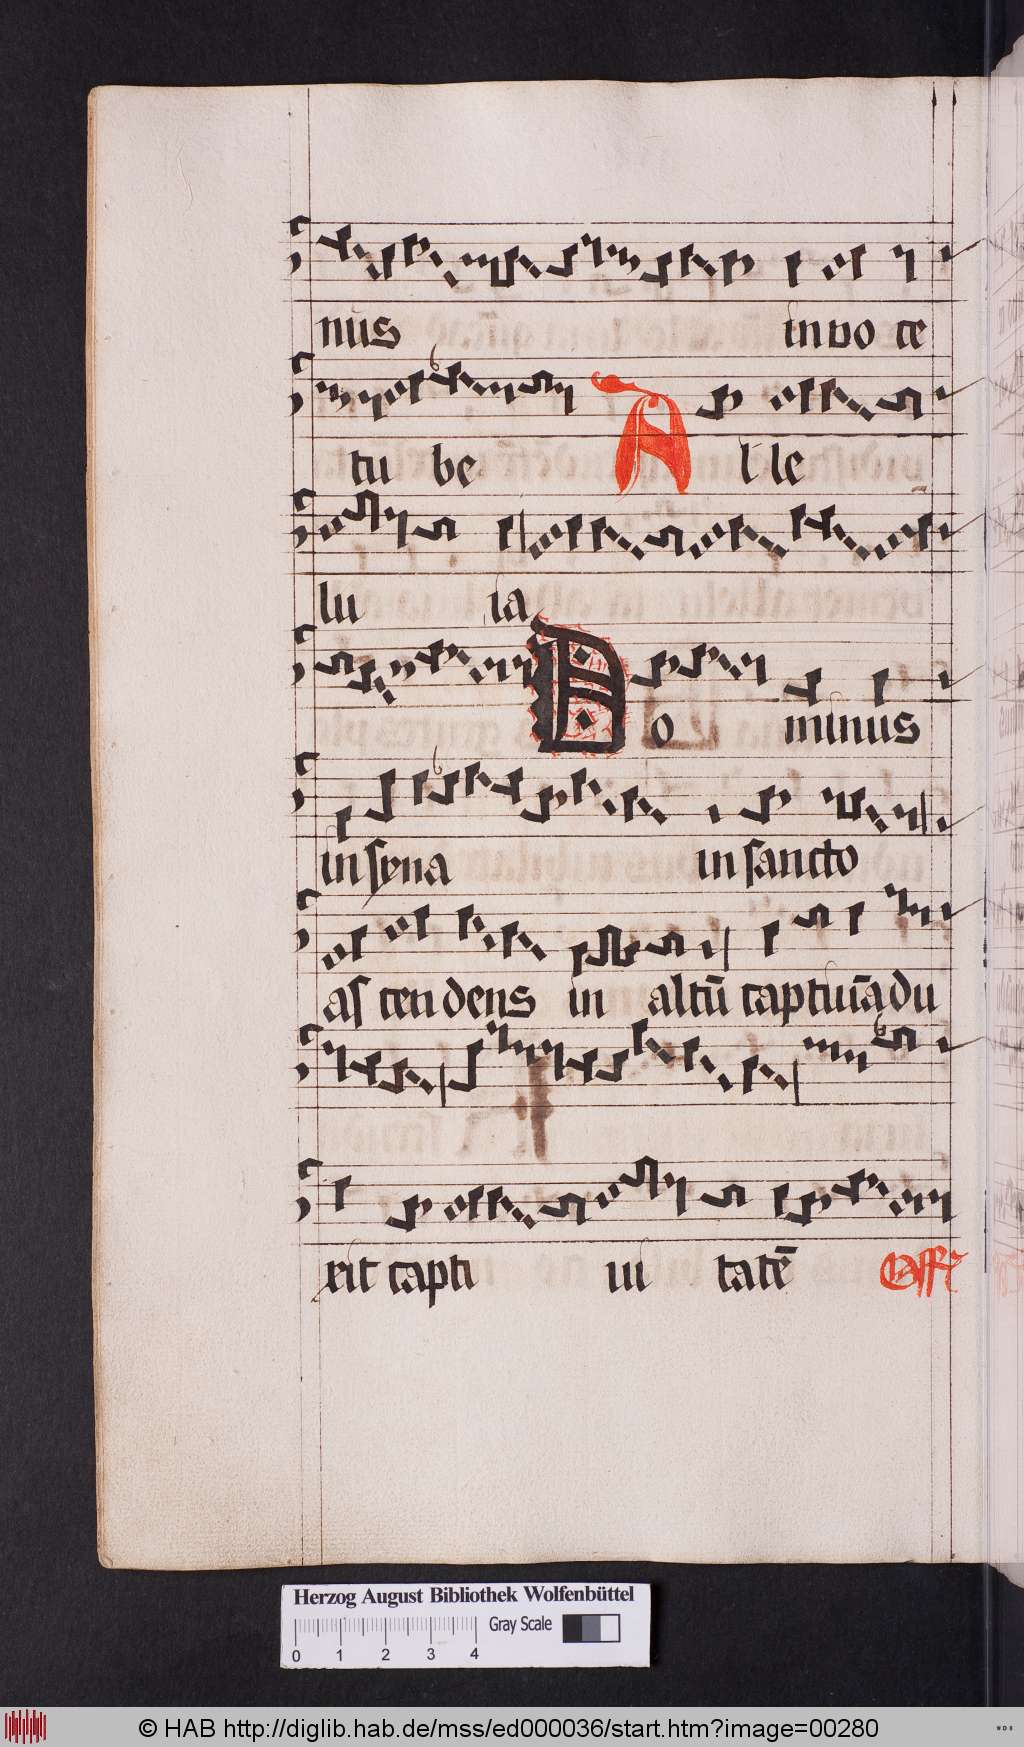 nus in vo ce
tu be Al le
lu ia
Do minus
in syna in sancto
as cen dens in altū captiuā du
xit capti ui tatē Off
Herzog August Bibliothek Wolfenbüttel
Gray Scale
0 1 2 3 4
© HAB http://diglib.hab.de/mss/ed000036/start.htm?image=00280